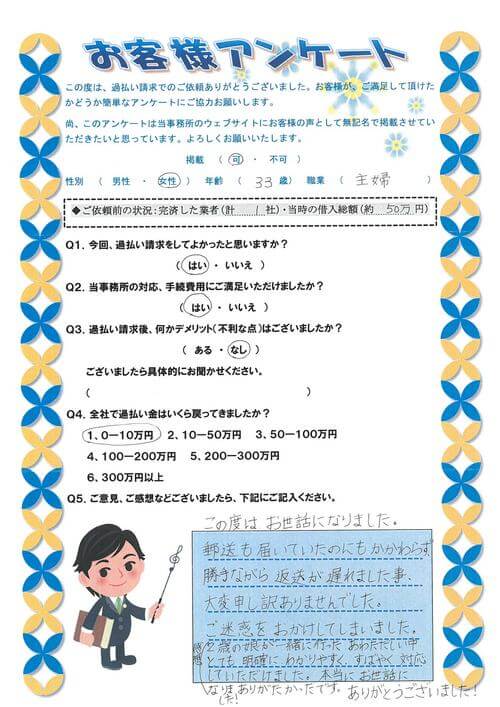 お客様アンケート
この度は、過払い請求でのご依頼ありがとうございました。お客様が、ご満足して頂けた
かどうか簡単なアンケートにご協力お願いします。
尚、このアンケートは当事務所のウェブサイトにお客様の声として無記名で掲載させてい
ただきたいと思っています。よろしくお願いいたします。
掲載 （ 可 ・ 不可 ）
性別 （ 男性 ・ 女性 ） 年齢 （ 33歳） 職業 （ 主婦 ）
◆ご依頼前の状況：完済した業者（計 1 社）・当時の借入総額（約 50万円）
Q1. 今回、過払い請求をしてよかったと思いますか？
（ はい ・ いいえ ）
Q2. 当事務所の対応、手続費用にご満足いただけましたか？
（ はい ・ いいえ ）
Q3. 過払い請求後、何かデメリット（不利な点）はございましたか？
（ ある ・ なし ）
ございましたら具体的にお聞かせください。
（ ）
Q4. 全社で過払い金はいくら戻ってきましたか？
1、0－10万円 2、10－50万円 3、50－100万円
4、100－200万円 5、200－300万円
6、300万円以上
Q5. ご意見、ご感想などございましたら、下記にご記入ください。
この度は お世話になりました。
郵送も届いていたのにもかかわらず
勝手ながら 返送が遅れました事、
大変申し訳ありませんでした。
ご迷惑を おかけしてしまいました。
感想 2歳の娘が一緒に行った あわただしい中
とても 明確に わかりやすく、すばやく 対応
していただけました。本当に お世話に
なりました! ありがたかったです。 ありがとうございました!